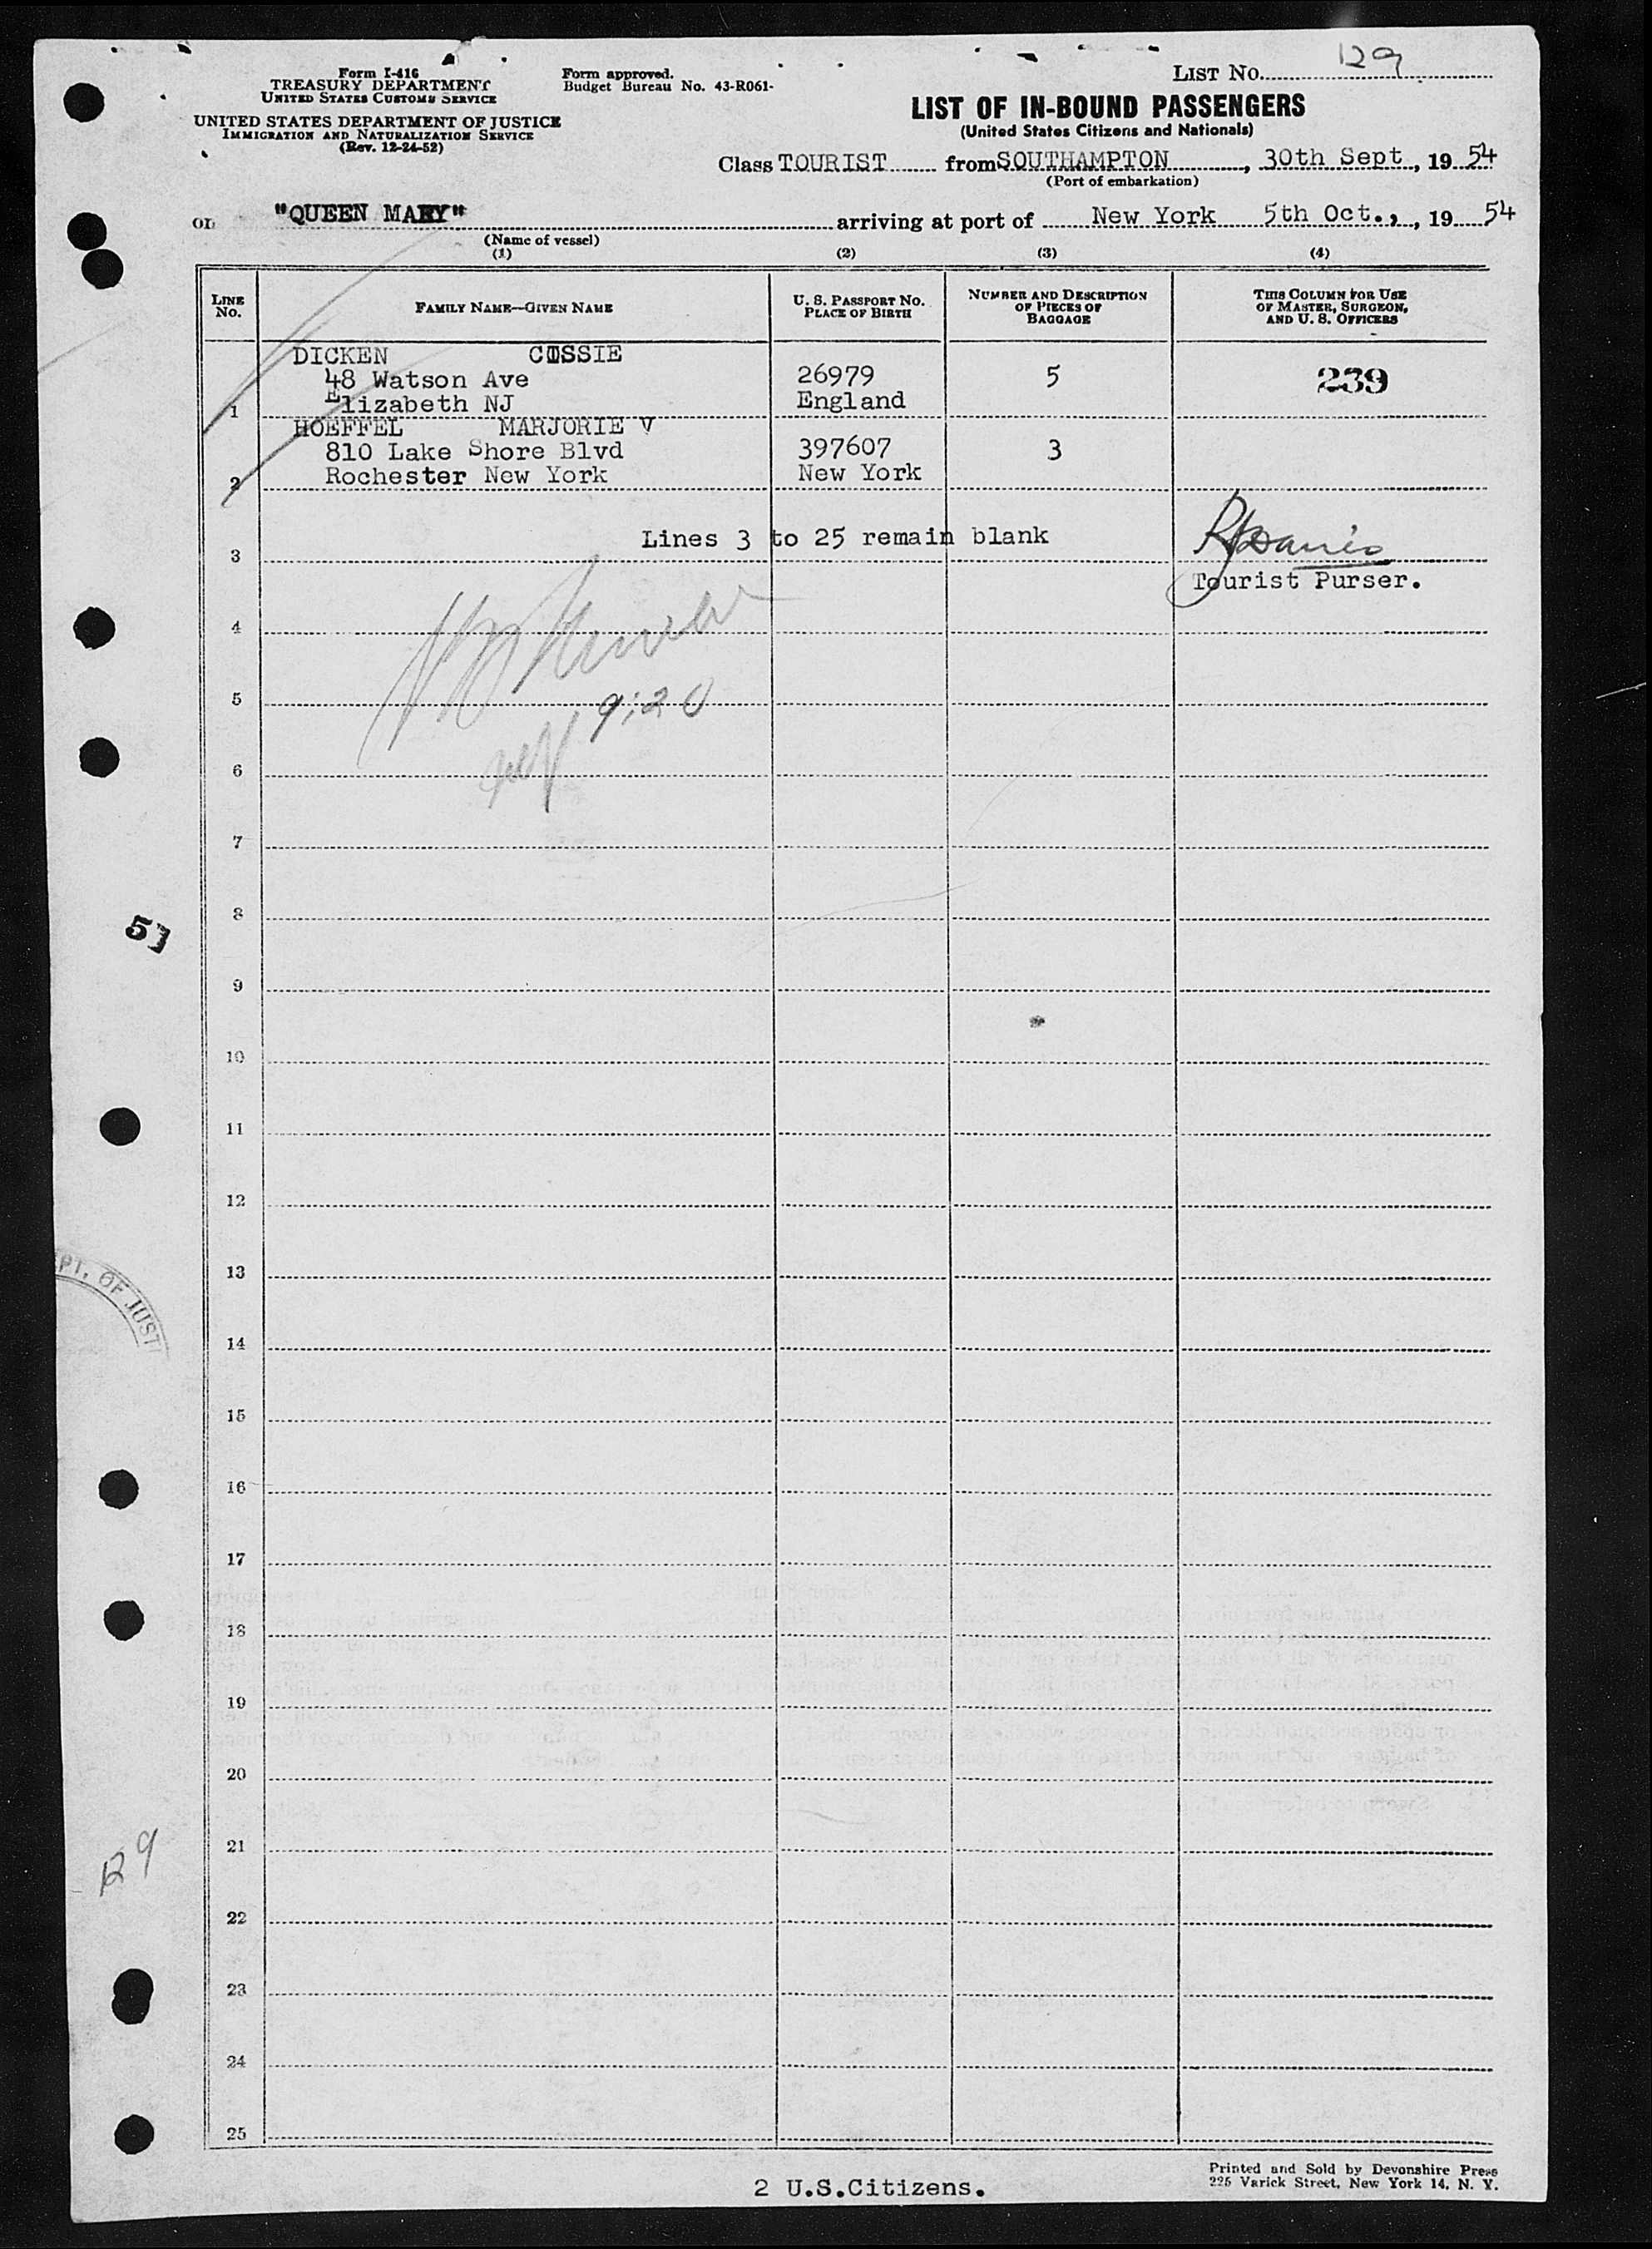 129
Form I-416
TREASURY DEPARTMENT
UNITED STATES CUSTOMS SERVICE
UNITED STATES DEPARTMENT OF JUSTICE
IMMIGRATION AND NATURALIZATION SERVICE
(Rev. 12-24-52)
Form approved.
Budget Bureau No. 43-R061-
LIST No.
LIST OF IN-BOUND PASSENGERS
(United States Citizens and Nationals)
Class TOURIST from SOUTHAMPTON, 30th Sept, 19 54
(Port of embarkation)
on "QUEEN MARY" arriving at port of New York 5th Oct., 19 54
(Name of vessel)
(1) (2) (3) (4)
LINE No. FAMILY NAME—GIVEN NAME U. S. PASSPORT NO. PLACE OF BIRTH NUMBER AND DESCRIPTION OF PIECES OF BAGGAGE THIS COLUMN FOR USE OF MASTER, SURGEON, AND U. S. OFFICERS
DICKEN
48 Watson Ave 26979 5 239
1 Elizabeth NJ England
HOEFFEL MARJORIE V
810 Lake Shore Blvd 397607 3
2 Rochester New York New York
Lines 3 to 25 remain blank
3
Tourist Purser.
4
5 9:20
6
7
8
5
9
10
11
12
13
PT. OF JUST
14
15
16
17
18
19
20
21
129
22
23
24
25
2 U.S.Citizens.
Printed and Sold by Devonshire Press
225 Varick Street, New York 14, N. Y.